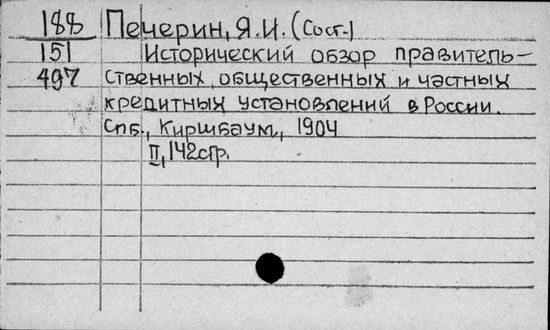 188 Печерин, Я.И. (Сост.)
151 Исторический обзор правитель-
497 ственных, общественных и частных
кредитных установлений в России.
Спб., Киршбаум, 1904
II, 142 стр.